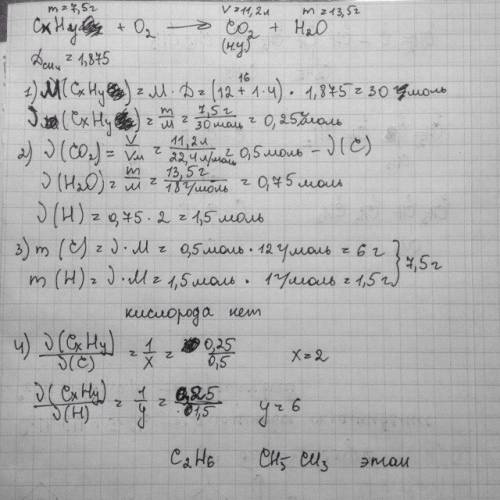 m=7,5г V=11,2л m=13,5г
CxHy + O₂ → CO₂ + H₂O
(ну)
D_CH₄ = 1,875
1) M(CxHy) = M · D = (12 + 1·4) · 1,875 = 30 г/моль
16
ν(CxHy) = m/M = 7,5г/30моль = 0,25моль
2) ν(CO₂) = V/Vм = 11,2л/22,4 л/моль = 0,5моль – ν(C)
ν(H₂O) = m/M = 13,5г/18г/моль = 0,75 моль
ν(H) = 0,75 · 2 = 1,5 моль
3) m(C) = ν · M = 0,5моль · 12г/моль = 6г
m(H) = ν · M = 1,5моль · 1г/моль = 1,5г } 7,5г
кислорода нет
4) ν(CxHy)/ν(C) = 1/x = 0,25/0,5 x=2
ν(CxHy)/ν(H) = 1/y = 0,25/1,5 y=6
C₂H₆ CH₃ CH₃ этан